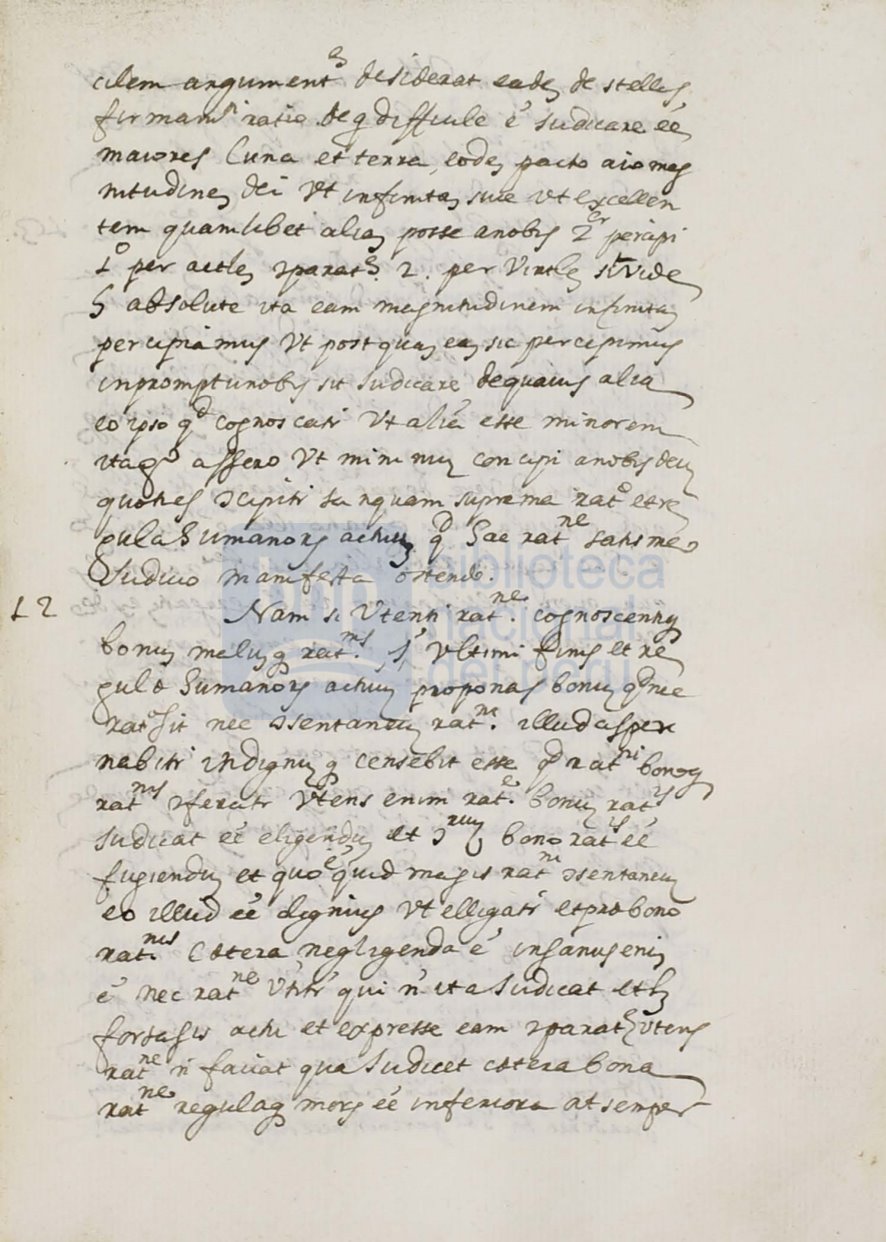 cilem argument^m desiderat eadē de stellis
firmam^ti ratio de q difficile ē Iudicare eē
maiores Luna et terra, eodē pacto aio mag
nitudinē dei Vt infinitā sive vt excellen
tem quamlibet aliā posse a nobis 2^er percipi
1º per actlē 2. per Virtlē
absolute ita eam magnitudinem infinitā
percipiamus Vt postquā eā sic percipimus
in promptu nobis sit Iudicare de quavis alia
eo ipso q^d cognoscatr Vt aliā esse minorem
itaq^e assero Vt minimū concipi a nobis deū
quoties concipitr tanquam suprema rat^o et re
gula humanorū actuū q^d hac rat^ne satis meo
Iudicio manifesta ostendo.
12 Nam si Utenti rat^ne. cognoscentiq
bonū malūq rat^nis. Ultimi finis et re
gulæ humanorū actuū proponas bonū q^d nec
rat^o sit nec consentaneū rat^ni. illud asper
nabitr indignūq censebit esse q^d rat^ni bonoq
rat^nis conferatr Vtens enim rat^e. bonū rat^is
Iudicat eē eligendū et bono rat^is eē
fugiendū et quo quid magis rat^ni consentaneū
eo illud eē dignius Vt elligatr et pro bono
rat^nis. Cœtera negligenda ē insanus enī
ē nec rat^ne Utitr qui n̄ ita Iudicat et
fortasis actu et expresse eam Utens
rat^ne n̄ faciat qua Iudicet cœtera bona
rat^ne regulaq morū eē inferiora at semper
biblioteca
nacional
del perú